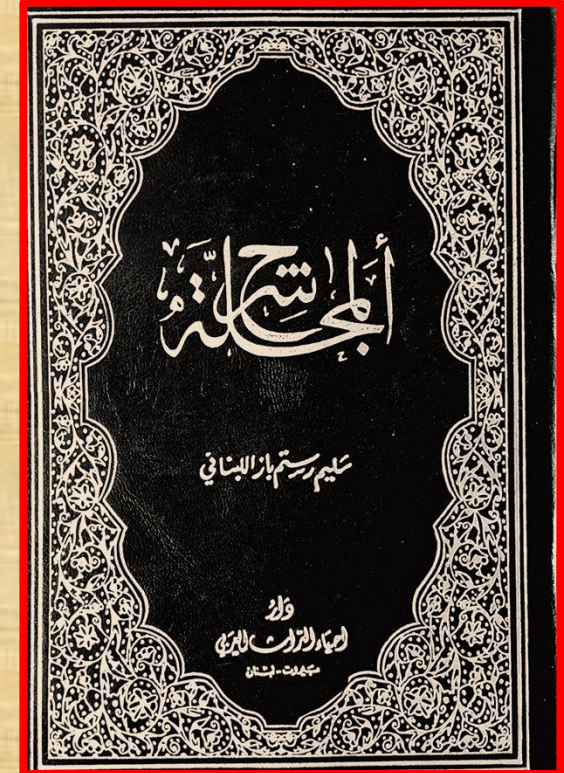 شرح المجلة
سليم رستم باز اللبناني
دار
احياء التراث العربي
بيروت - لبنان